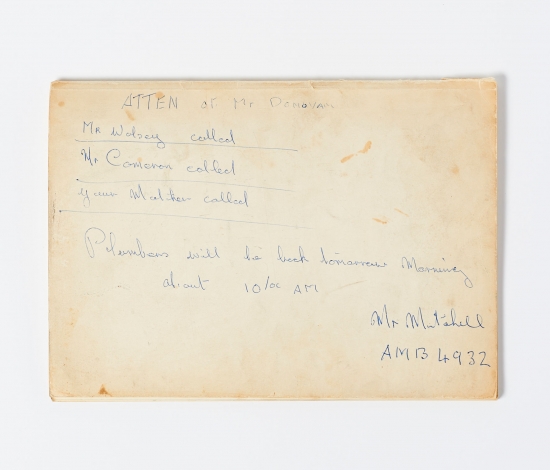 ATTEN of Mr Donovan
Mr Wolsey called
Mr Cameron called
your Mother called
Plumbers will be back tomorrow Morning
about 10/00 AM
Mr Mitchell
AMB 4932